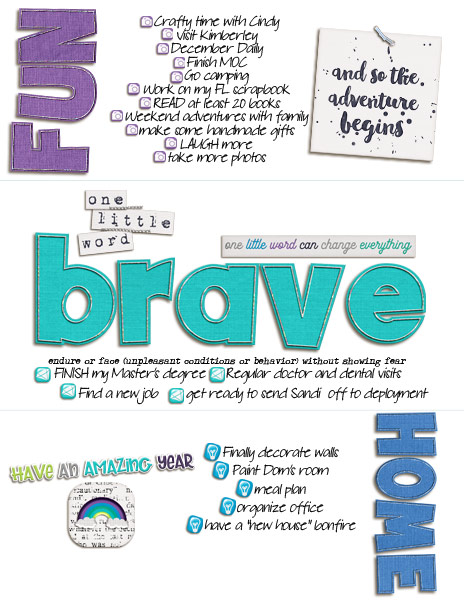 FUN
Crafty time with Cindy
Visit Kimberley
December Daily
Finish MOC
Go camping
Work on my FL scrapbook
READ at least 20 books
Weekend adventures with family
make some handmade gifts
LAUGH more
take more photos
and so the
adventure
begins
one
little
word
one little word can change everything
brave
endure or face (unpleasant conditions or behavior) without showing fear
FINISH my Master's degree
Regular doctor and dental visits
Find a new job
get ready to send Sandi off to deployment
HAVE AN AMAZING YEAR
Finally decorate walls
Paint Dom's room
meal plan
organize office
have a "new house" bonfire
HOME